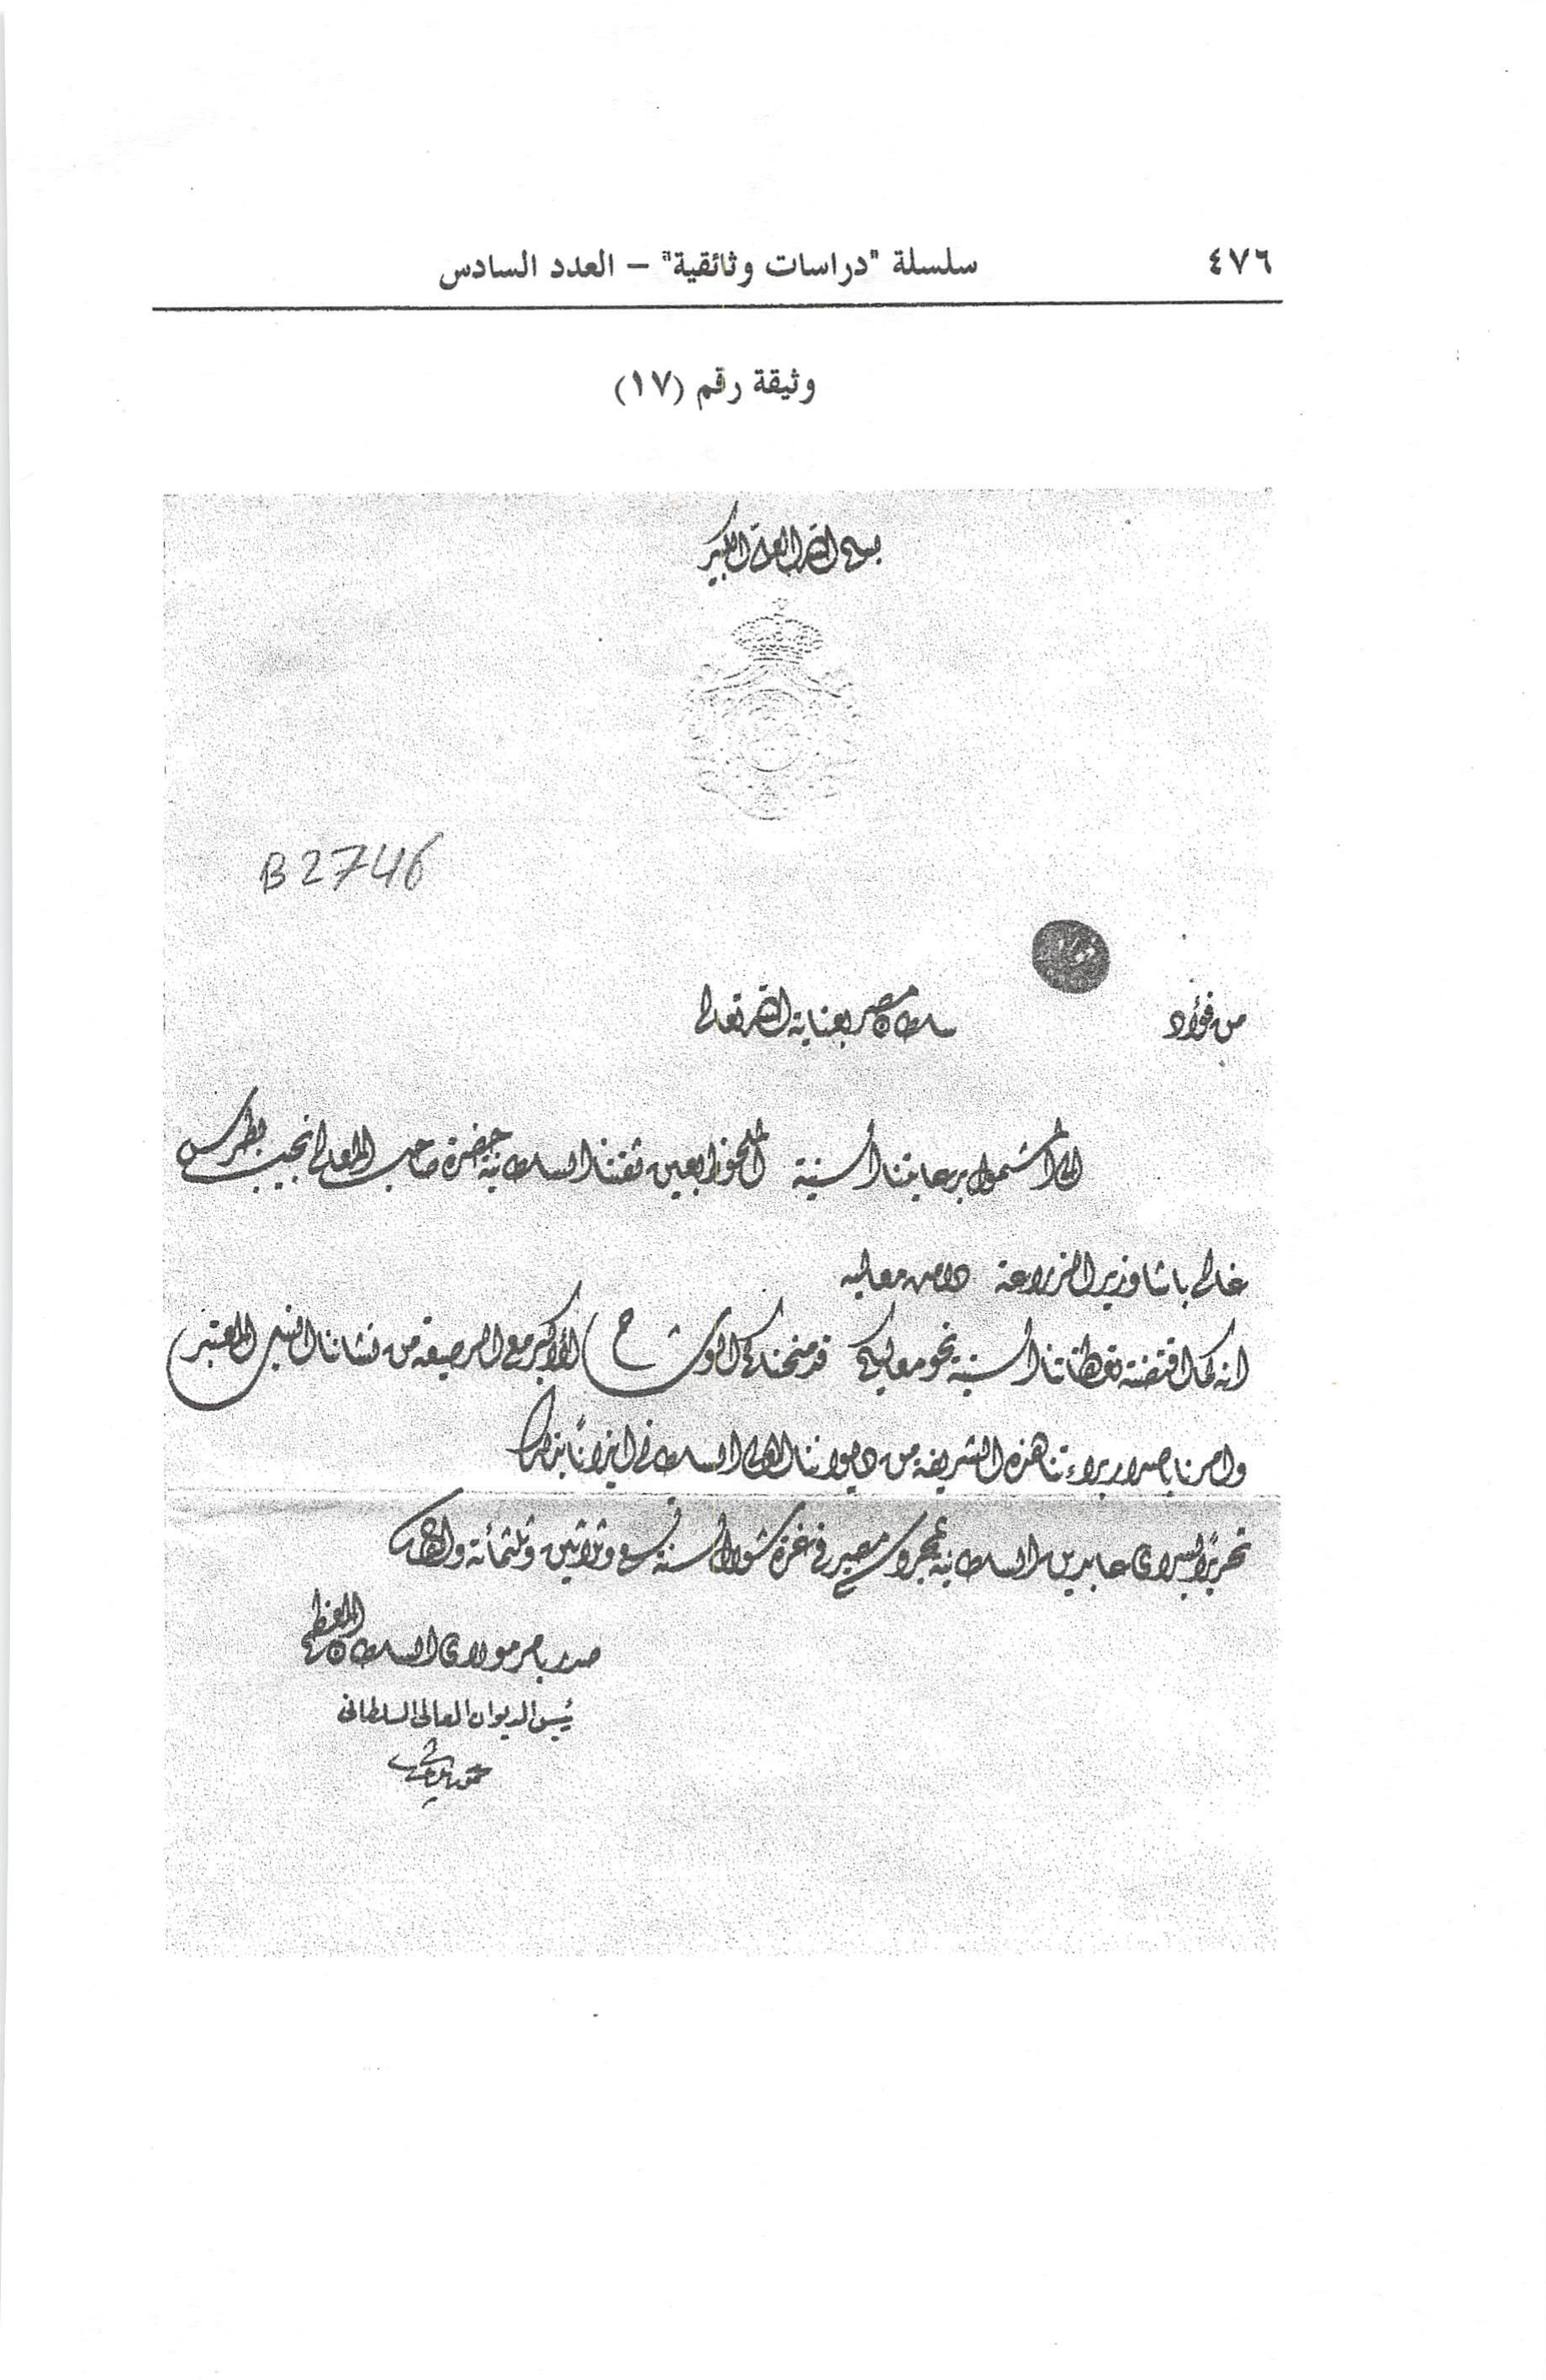 ٤٧٦
سلسلة "دراسات وثائقية" – العدد السادس
وثيقة رقم (١٧)
بعون الله العلي الكبير
B2746
فؤاد
من فؤاد سلطان مصر بعناية الله تعالى
الى المشمول برعايتنا السنية الملحوظ بعين ثقتنا السلطانية حضرة صاحب المعالى نجيب بطرس
غالى باشا وزير الزراعة دامت معاليه
انه لما اقتضته تعطفاتنا السنية نحو معاليكم قد منحناكم الوشاح الأكبر مع الرصيعة من نشاننا النيل المعتبر
وامرنا باصدار براءتنا هذه الشريفة من ديواننا العالى السلطانى ايذانا بذلك
تحريرا بسراى عابدين السلطانية بمحروسة مصر فى غرة شوال سنة تسع وثلاثين وثلثمائة والف
صدر بامر مولاى السلطان المعظم
رئيس الديوان العالى السلطانى